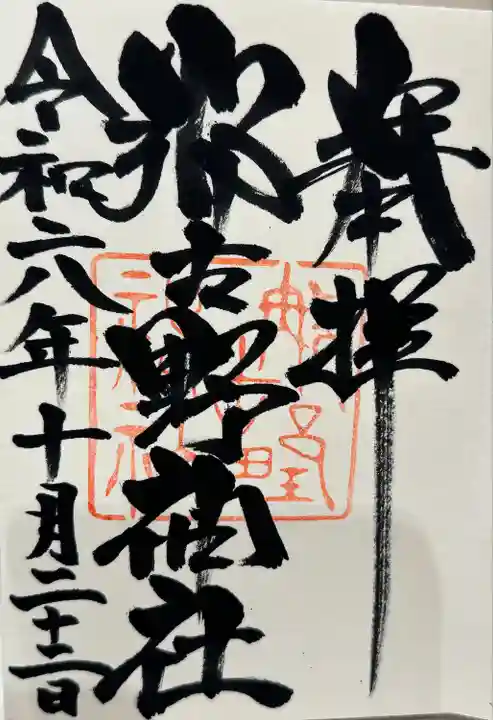 奉拝
那古野神社
令和六年十月二十三日